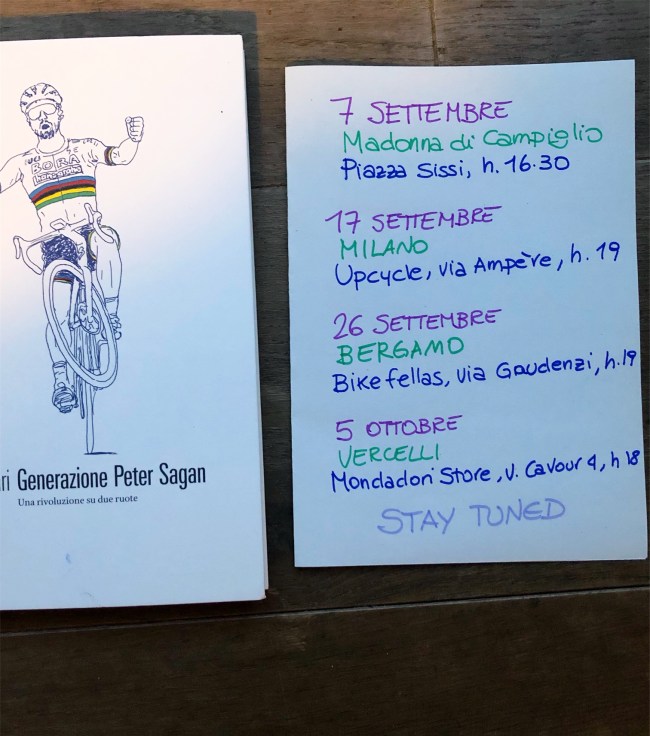 BORA
ri Generazione Peter Sagan
Una rivoluzione su due ruote
7 SETTEMBRE
Madonna di Campiglio
Piazza Sissi, h. 16.30
17 SETTEMBRE
MILANO
Upcycle, via Ampère, h. 19
26 SETTEMBRE
BERGAMO
Bike fellas, via Gaudenzi, h.19
5 OTTOBRE
VERCELLI
Mondadori Store, v. Cavour 4, h 18
STAY TUNED